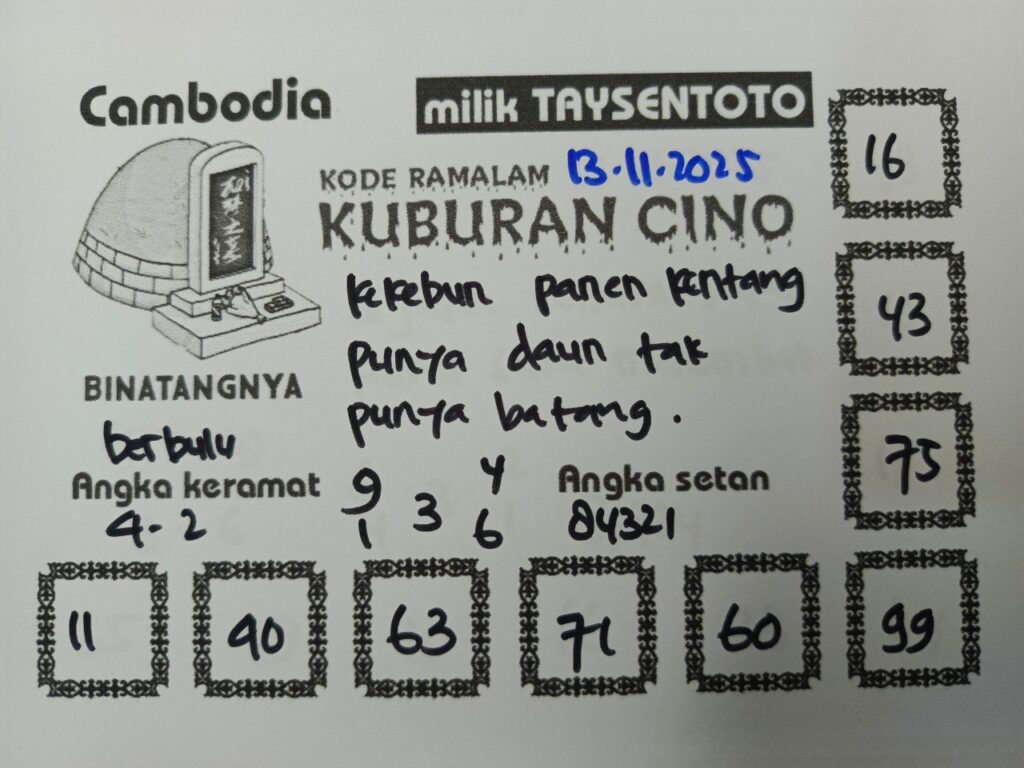 Cambodia
milik TAYSENTOTO
KODE RAMALAM 13.11.2025
KUBURAN CINO
kekebun panen kentang
punya daun tak
punya batang.
BINATANGNYA
berbulu
Angka keramat
4-2
9 4
3
1 6
Angka setan
84321
16
43
75
11
40
63
71
60
99